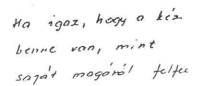 Ha igaz, hogy a kéz
benne van, mint
saját magáról felfec